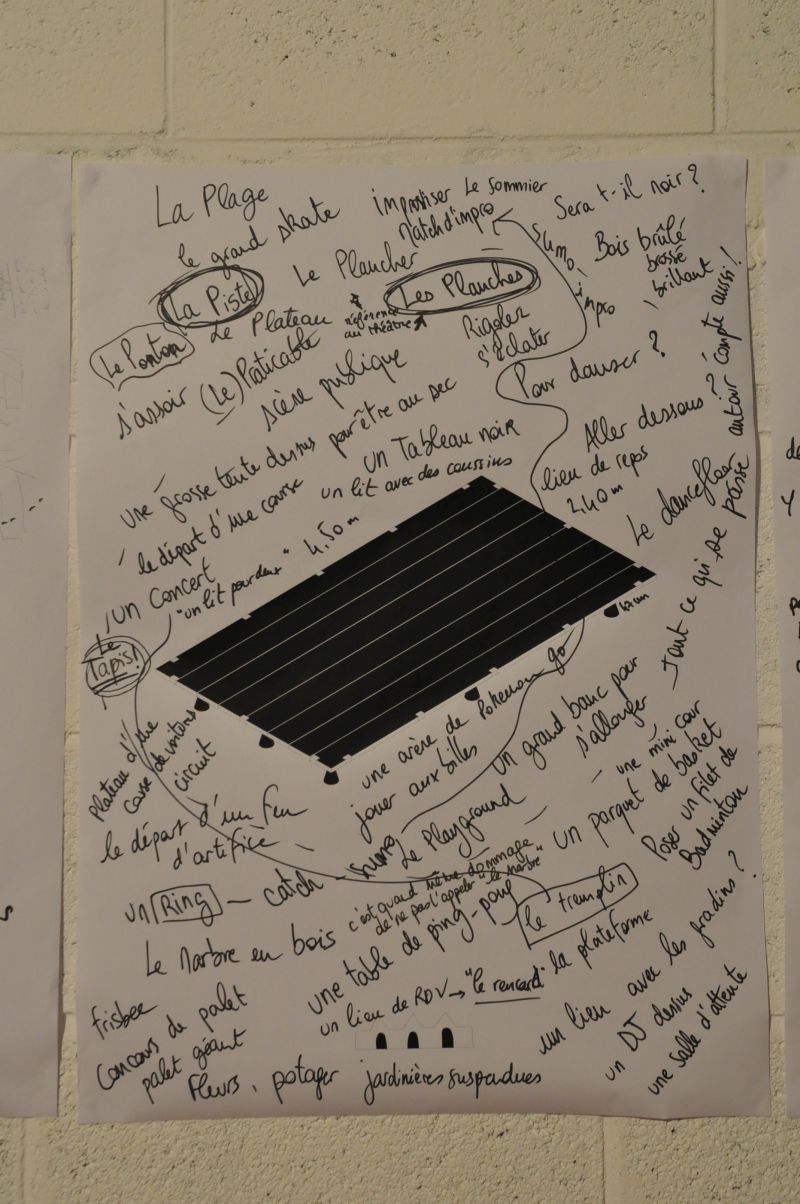 La Plage
le grand skate
improviser
Match d'impro
Le Sommier
Sera t-il noir ?
Le Plancher
Sumo
impro
Bois brûlé
brossé
brillant
La Piste
Les Planches
Le Ponton
Le Plateau
référence
au théâtre
Rigoler
s'éclater
s'assoir
(Le) Praticable
scène publique
Pour danser ?
une grosse tente dessus pour être au sec
un Tableau noir
Aller dessous ?
lieu de repos
2.40 m
le départ d'une course
un lit avec des coussins
4.50 m
un concert
"un lit pour deux"
Le dancefloor
tout ce qui se passe
autour compte aussi !
Le
Tapis!
47 cm
Plateau d'une
course de voitures
circuit
une arène de Pokemon go
jouer aux billes
un grand banc pour
s'allonger
le départ d'un feu
d'artifice
Le Playground
une mini cour
un parquet de basket
Poser un filet de
Badminton
un Ring — catch — sumo
c'est quand même dommage
de ne pas l'appeler "le marbre"
Le Marbre en bois
une table de ping-pong
le tremplin
frisbee
un lieu de RDV → "le rencard"
la plateforme
un lien avec les gradins ?
Concours de palet
palet géant
un DJ dessus
une salle d'attente
Fleurs, potager
jardinières suspendues